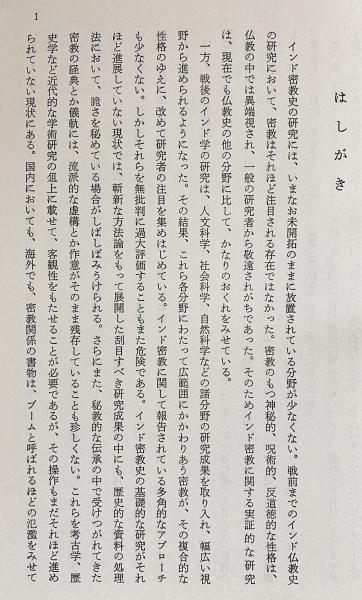 はしがき
インド密教史の研究には、いまなお未開拓のままに放置されている分野が少なくない。戦前までのインド仏教史
の研究において、密教はそれほど注目される存在ではなかった。密教のもつ神秘的、呪術的、反道徳的な性格は、
仏教の中では異端視され、一般の研究者から敬遠されがちであった。そのためインド密教に関する実証的な研究
は、現在でも仏教史の他の分野に比して、かなりのおくれをみせている。
一方、戦後のインド学の研究は、人文科学、社会科学、自然科学などの諸分野の研究成果を取り入れ、幅広い視
野から進められるようになった。その結果、これら各分野にわたって広範囲にかかわりあう密教が、その複合的な
性格のゆえに、改めて研究者の注目を集めはじめている。インド密教に関して報告されている多角的なアプローチ
も少なくない。しかしそれらを無批判に過大評価することもまた危険である。インド密教史の基礎的な研究がそれ
ほど進展していない現状では、斬新な方法論をもって展開した刮目すべき研究成果の中にも、歴史的な資料の処理
法において、脆さを秘めている場合がしばしばみうけられる。さらにまた、秘教的な伝承の中で受けつがれてきた
密教の経典とか儀軌には、流派的な虚構とか作意がそのまま残存していることも珍しくない。これらを考古学、歴
史学など近代的な学術研究の俎上に載せて、客観性をもたせることが必要であるが、その操作もまだそれほど進め
られていない現状にある。国内においても、海外でも、密教関係の書物は、ブームと呼ばれるほどの氾濫をみせて
1